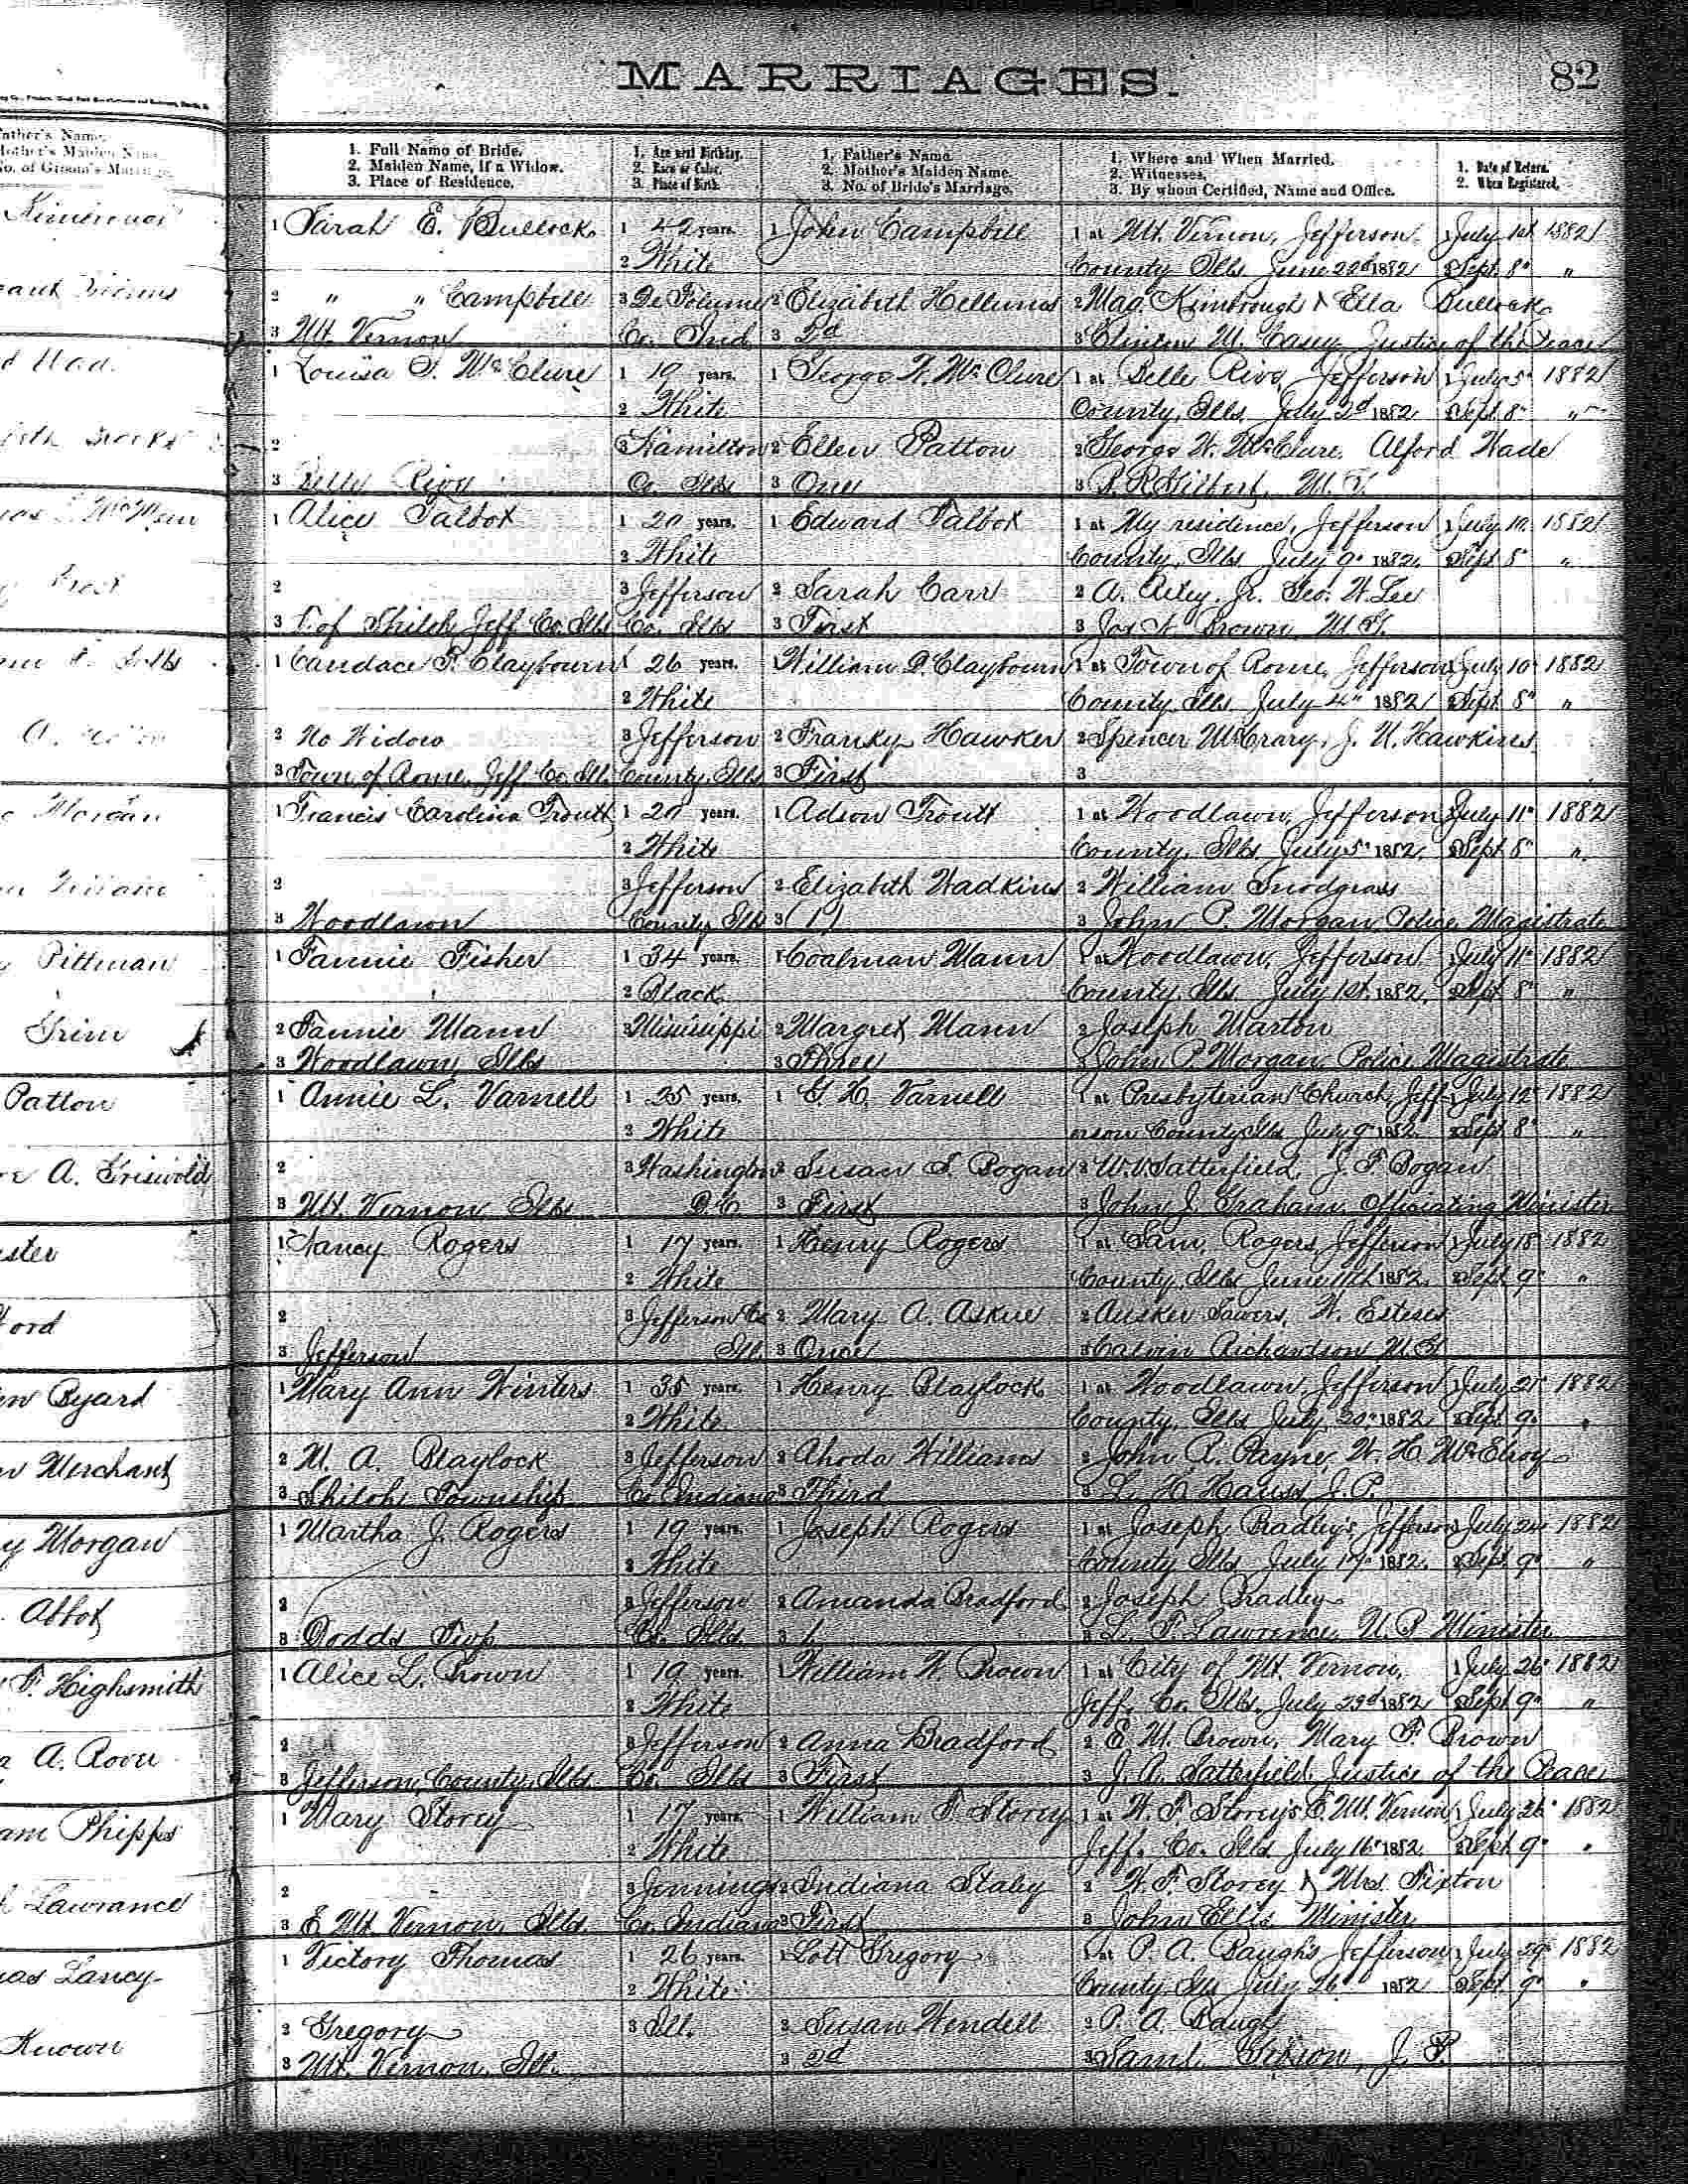 MARRIAGES.
82
Father's Name.
Mother's Maiden Name
No. of Groom's Marriage.
1. Full Name of Bride.
2. Maiden Name, if a Widow.
3. Place of Residence.
1. Age next Birthday.
2. Race or Color.
3. Place of Birth.
1. Father's Name
2. Mother's Maiden Name.
3. No. of Bride's Marriage.
1. Where and When Married.
2. Witnesses,
3. By whom Certified, Name and Office.
1. Date of Return.
2. When Registered.
1 Sarah E. Bullock. 1 42 years. 1 John Campbell 1 at Mt. Vernon, Jefferson 1 July 1st 1882
2 White County Ills June 22d 1882 2 Sept. 8" "
2 " " Campbell 3 2 Elizabeth Hellums 2 Mag. Kimbrough & Ella Bullock
3 Mt. Vernon Co. Ind 3 2d 3 Clinton M. Casey Justice of the Peace
1 Louisa T. McClure 1 19 years. 1 George W. McClure 1 at Belle Rive, Jefferson 1 July 5" 1882
2 White County, Ills. July 2d 1882 2 Sept. 8" "
2 3 Hamilton 2 Ellen Patton 2 George W. McClure, Alford Wade
3 Belle Rive Co. Ills 3 One 3 R. R. Gilbert, M. G.
1 Alice Talbot 1 20 years. 1 Edward Talbot 1 at My residence, Jefferson 1 July 10 1882
2 White County, Ills. July 9" 1882. 2 Sept 8" "
2 3 Jefferson 2 Sarah Carr 2 A. Riley, Jr. Geo. W. Lee
3 T. of Shiloh, Jeff. Co. Ills Co. Ills 3 First 3 Jas. A. Brown, M. G.
1 Candace F. Claybourn 1 26 years. 1 William D. Claybourn 1 at Town of Rome, Jefferson 1 July 10" 1882
2 White County, Ills. July 4th 1882 2 Sept. 8" "
2 No Widow 3 Jefferson 2 Franky Hawker 2 Spencer McCrary, J. N. Hawkins
3 Town of Rome, Jeff. Co. Ill. County, Ills 3 First 3
1 Francis Carolina Troutt 1 20 years. 1 Adson Troutt 1 at Woodlawn, Jefferson 1 July 11" 1882
2 White County, Ills. July 5" 1882. 2 Sept 8" "
2 3 Jefferson 2 Elizabeth Wadkins 2 William Snodgrass
3 Woodlawn County, Ills 3 (1) 3 John P. Morgan, Police Magistrate
1 Fannie Fisher 1 34 years. 1 Coalman Mann 1 at Woodlawn, Jefferson 1 July 11" 1882
2 Black County, Ills. July 1st. 1882. 2 Sept 8" "
2 Fannie Mann 3 Mississippi 2 Margret Mann 2 Joseph Marton
3 Woodlawn, Ills 3 Three 3 John P. Morgan, Police Magistrate
1 Annie L. Varnell 1 25 years. 1 G. H. Varnell 1 at Presbyterian Church, Jeff- 1 July 12" 1882
2 White erson County Ills July 9" 1882. 2 Sept 8" "
2 3 Washington 2 Susan S. Bogan 2 W. V. Satterfield, J. F. Bogan
3 Mt. Vernon, Ills D. C. 3 First 3 John J. Graham, Officiating Minister
1 Nancy Rogers 1 17 years. 1 Henry Rogers 1 at Sam. Rogers, Jefferson 1 July 18 1882
2 White County, Ills. June 11th 1882. 2 Sept 9" "
2 3 Jefferson Co 2 Mary A. Askue 2 W. Esteses
3 Jefferson Ills 3 Once 3 Calvin Richardson M. G.
1 Mary Ann Winters 1 35 years. 1 Henry Blaylock 1 at Woodlawn, Jefferson 1 July 21" 1882
2 White County, Ills. July 20" 1882 2 Sept 9" "
2 M. A. Blaylock 3 Jefferson 2 Rhoda Williams 2 John R. Payne, W. H. McElroy
3 Shiloh Township Co. Indiana 3 Third 3 L. H. Hauss J. P.
1 Martha J. Rogers 1 19 years. 1 Joseph Rogers 1 at Joseph Bradley's, Jefferson 1 July 24 1882
2 White County Ills. July 17" 1882. 2 Sept 9" "
2 3 Jefferson 2 Amanda Bradford 2 Joseph Bradley
3 Dodds Twp Co. Ills. 3 1 3 L. F. Lawrence, U. B. Minister
1 Alice L. Brown 1 19 years. 1 William W. Brown 1 at City of Mt. Vernon, 1 July 26" 1882
2 White Jeff. Co. Ills. July 23d 1882 2 Sept 9" "
2 3 Jefferson 2 Anna Bradford 2 E. M. Brown, Mary F. Brown
3 Jefferson County, Ills. Co. Ills 3 First 3 J. A. Satterfield, Justice of the Peace
1 Mary Storey 1 17 years. 1 William F. Storey 1 at W. F. Storey's E. Mt. Vernon, 1 July 26" 1882
2 White Jeff. Co. Ills July 16" 1882. 2 Sept 9" "
2 3 Jennings 2 Indiana Staley 2 W. F. Storey & Mrs. Tixton
3 E Mt. Vernon, Ills. Co. Indiana 3 First 3 John Ellis, Minister
1 Victory Thomas 1 26 years. 1 Lott Gregory 1 at P. A. Baugh's Jefferson 1 July 29" 1882
2 White County, Ills July 26" 1882 2 Sept. 9" "
2 Gregory 3 Ill. 2 Susan Wendell 2 P. A. Baugh
3 Mt. Vernon, Ill. 3 2d 3 Saml. Gibson, J. P.
Morgan
Pittman
Grim
Patton
A. Griswold
Byard
Merchant
Morgan
Abbot
F. Highsmith
A. Rovu
Phipps
Lawrance
Lancy
Known